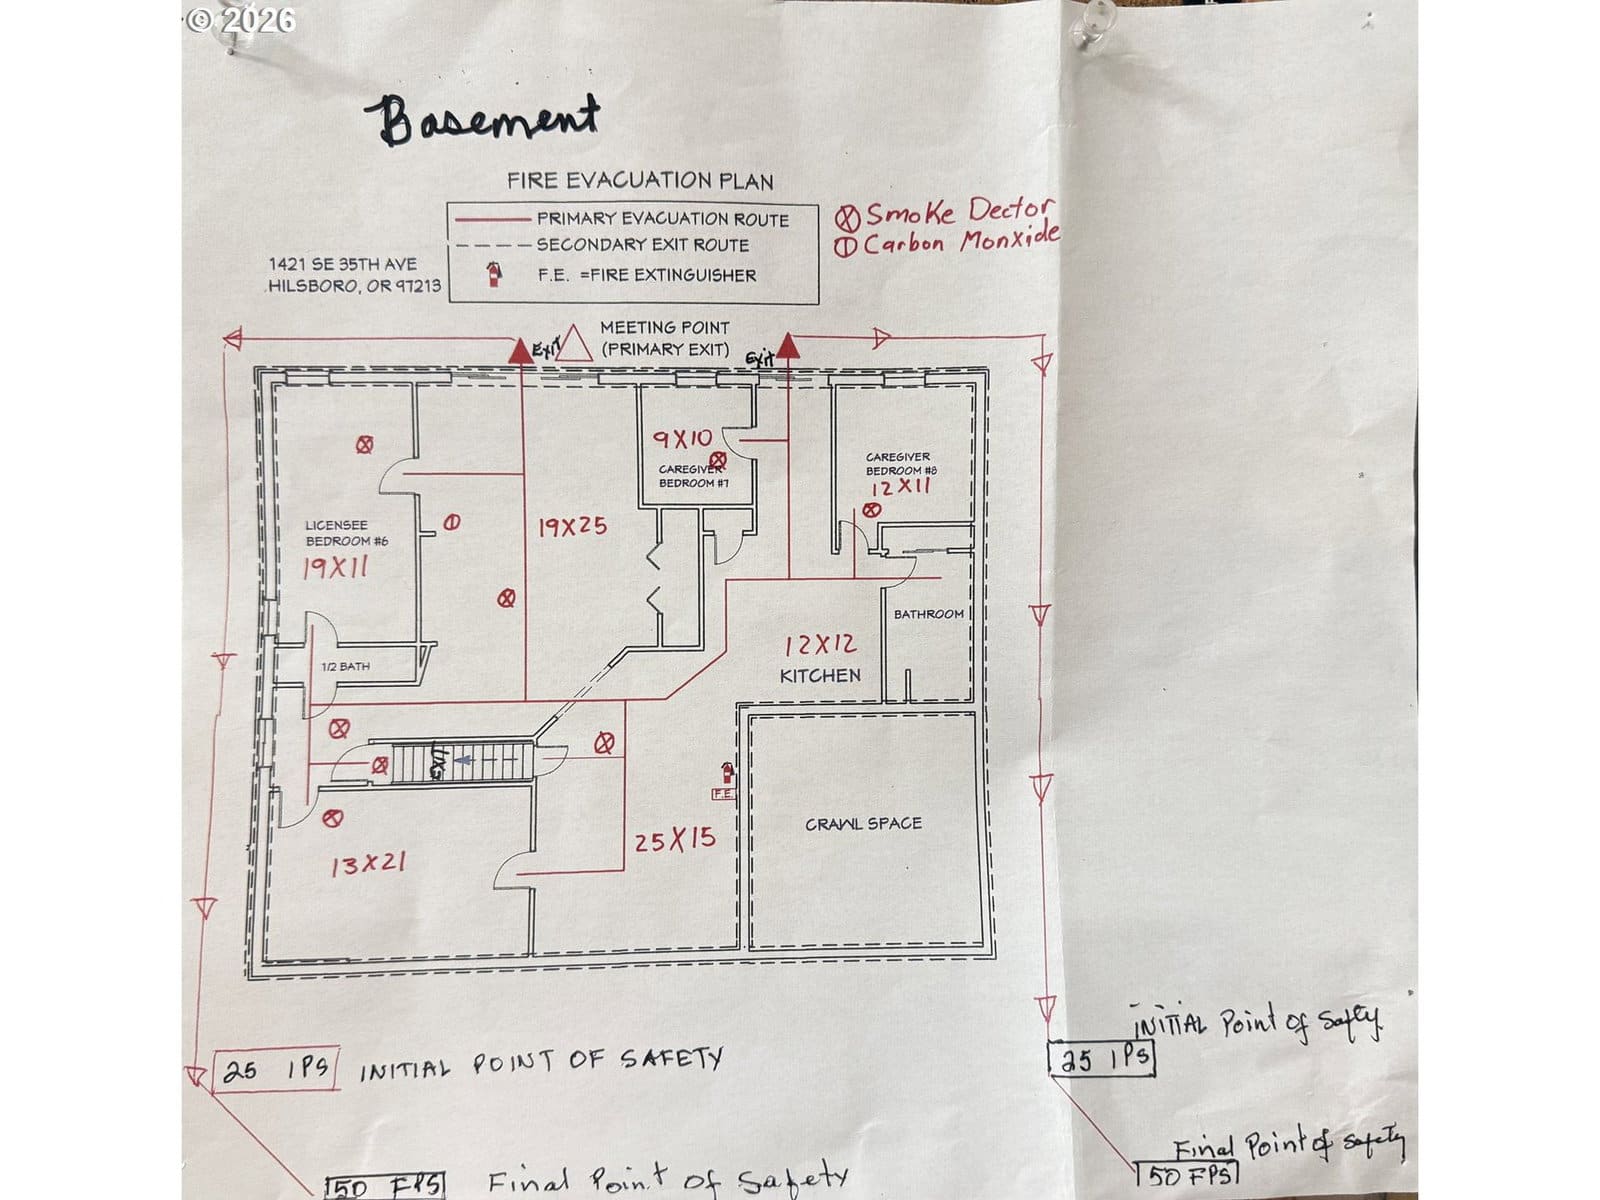 © 2026
Basement
FIRE EVACUATION PLAN
PRIMARY EVACUATION ROUTE
SECONDARY EXIT ROUTE
F.E. =FIRE EXTINGUISHER
Smoke Dector
Carbon Monxide
1421 SE 35TH AVE
HILSBORO, OR 97213
MEETING POINT
(PRIMARY EXIT)
Exit
Exit
9X10
CAREGIVER
BEDROOM #7
CAREGIVER
BEDROOM #8
12X11
LICENSEE
BEDROOM #6
19X11
19X25
BATHROOM
12X12
KITCHEN
1/2 BATH
F.E.
CRAWL SPACE
25X15
13X21
INITIAL Point of Safty
25 IPS
25 IPS INITIAL POINT OF SAFETY
Final Point of Safety
50 FPS
50 FPS Final Point of Safety